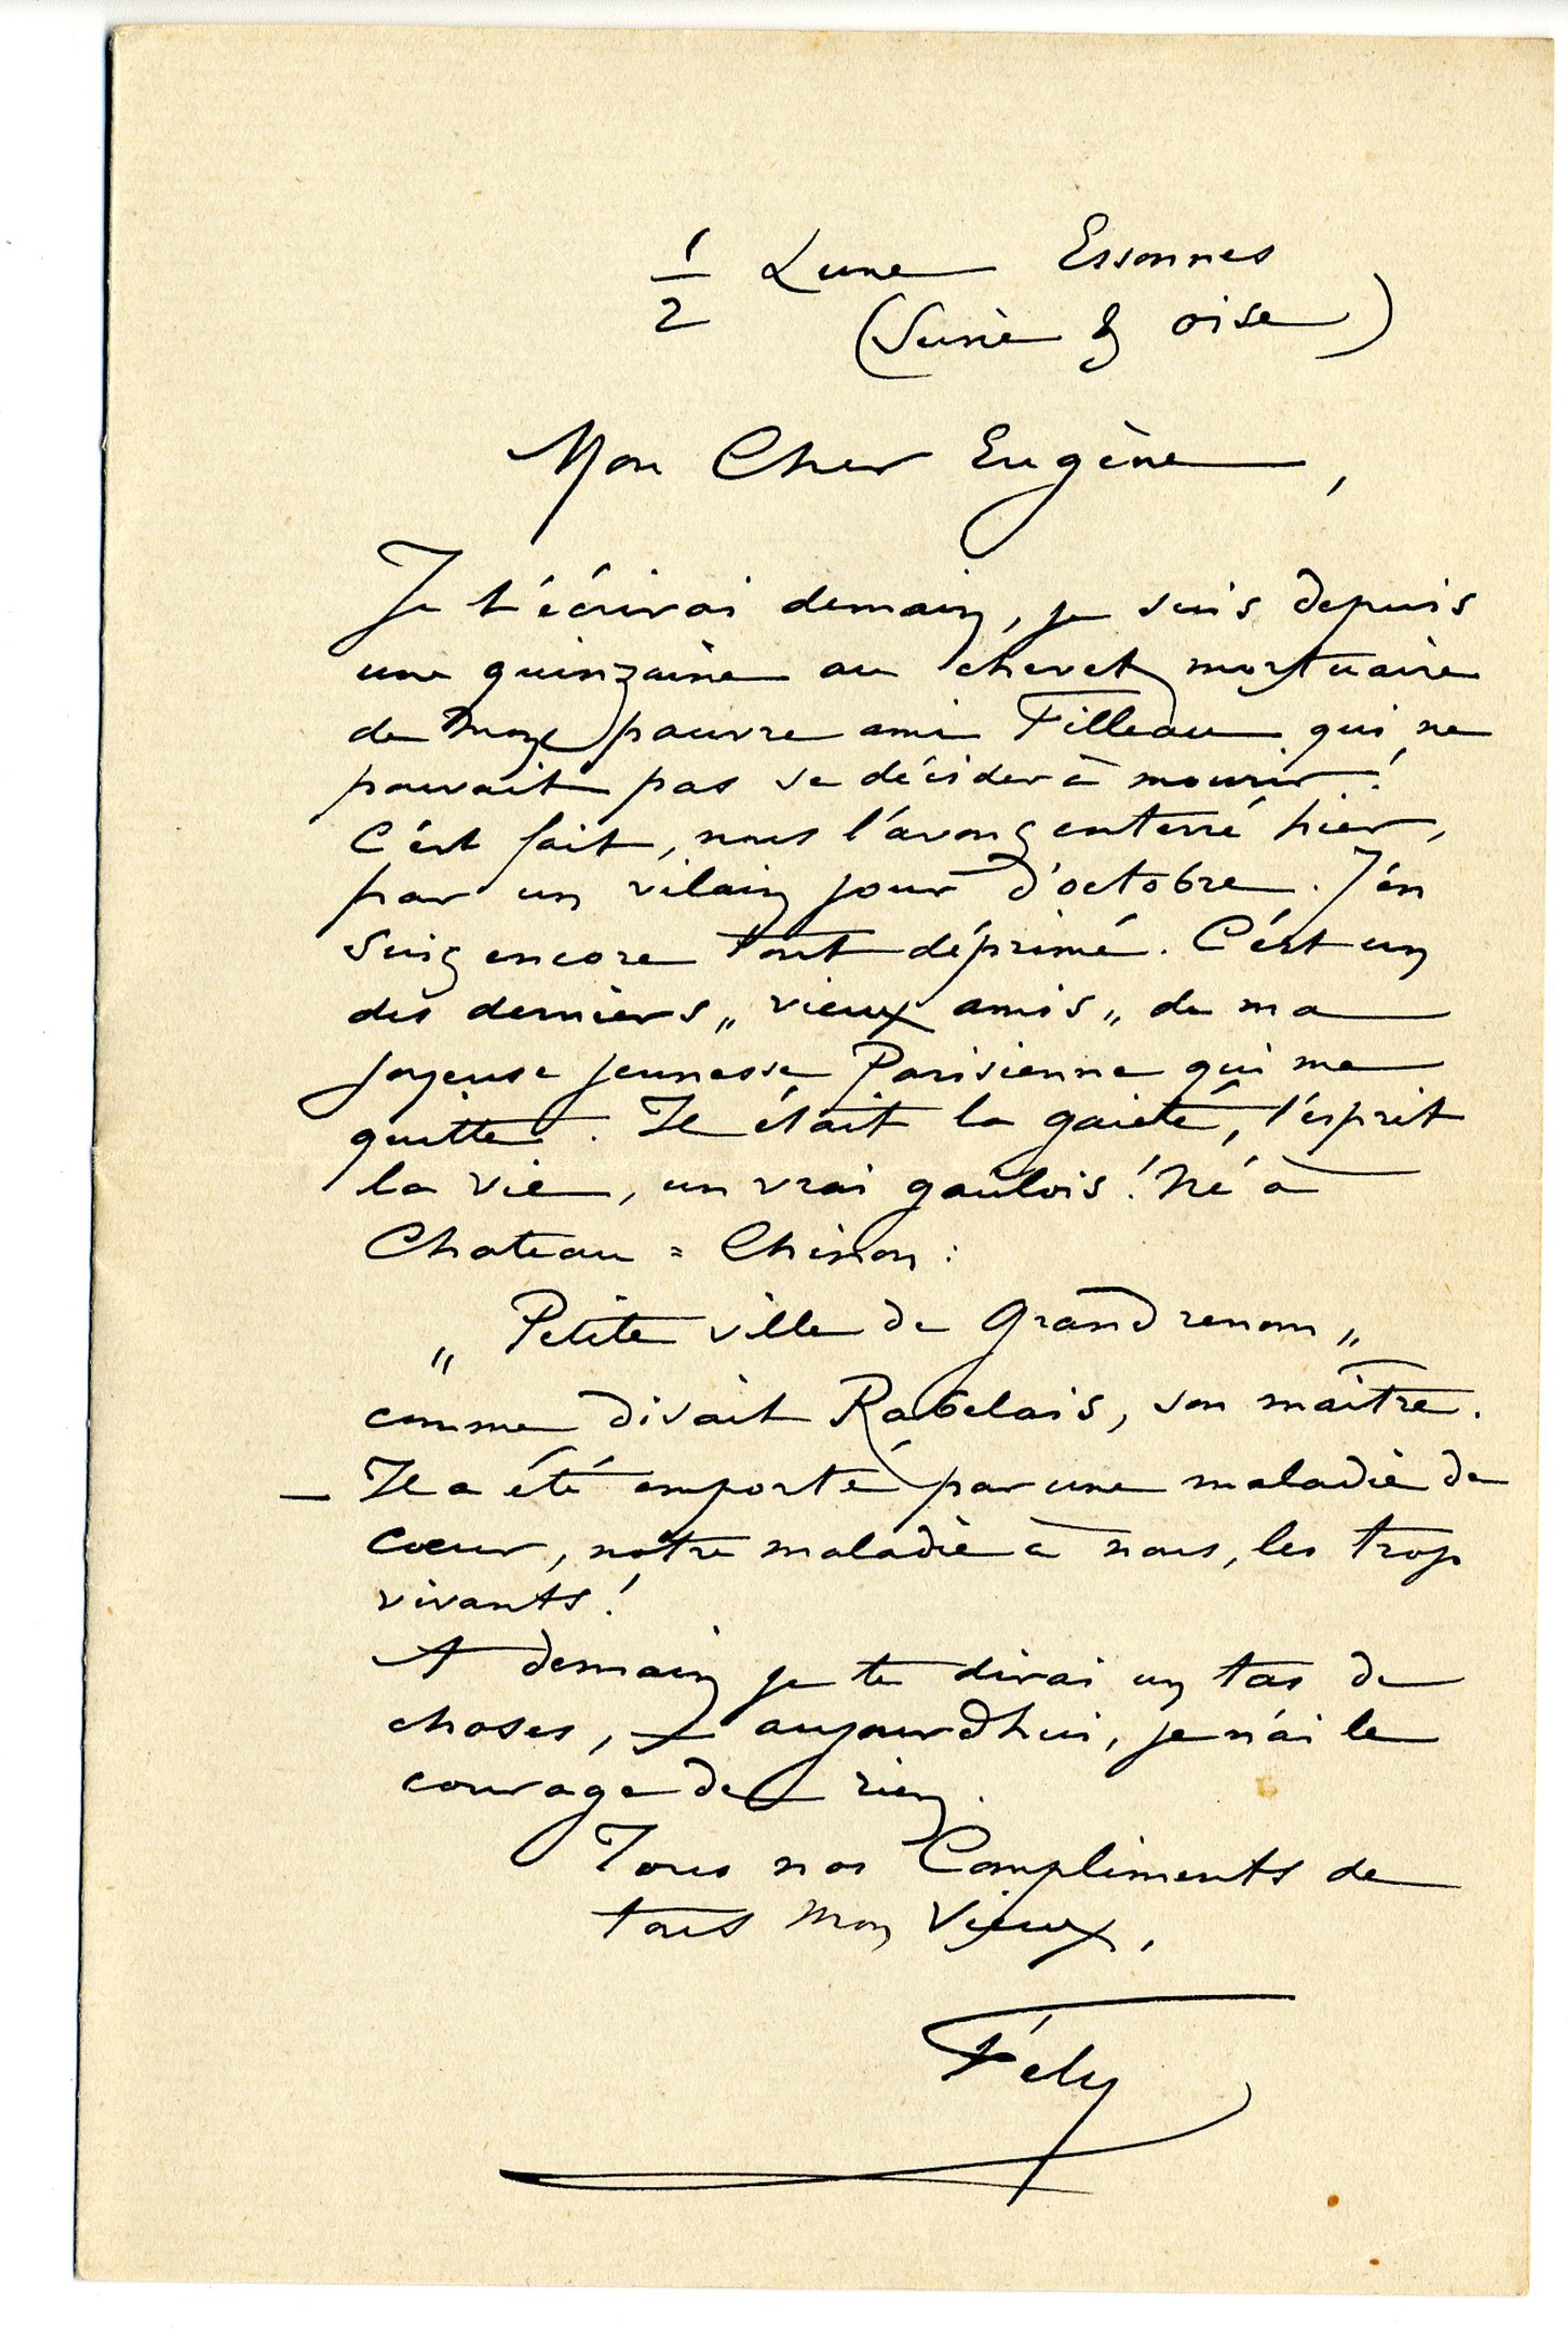 1/2 Lune Essonnes
(Seine & oise)
Mon Cher Eugène,
Je t'écrirai demain, je suis depuis
une quinzaine au chevet mortuaire
de mon pauvre ami Filleau qui ne
pouvait pas se décider à mourir !
C'est fait, nous l'avons enterré hier,
par un vilain jour d'octobre. J'en
suis encore tout déprimé. C'est un
des derniers „ vieux amis „ de ma
joyeuse jeunesse Parisienne qui me
quitte. Il était la gaieté, l'esprit
la vie, un vrai gaulois ! Né à
Chateau = Chinon :
„ Petite ville de Grand renom „
comme disait Rabelais, son maître.
— Il a été emporté par une maladie de
coeur, notre maladie à nous, les trop
vivants !
A demain je te dirai un tas de
choses, — aujourdhui, je n'ai le
courage de rien.
Tous nos Compliments de
tous mon Vieux,
Fély